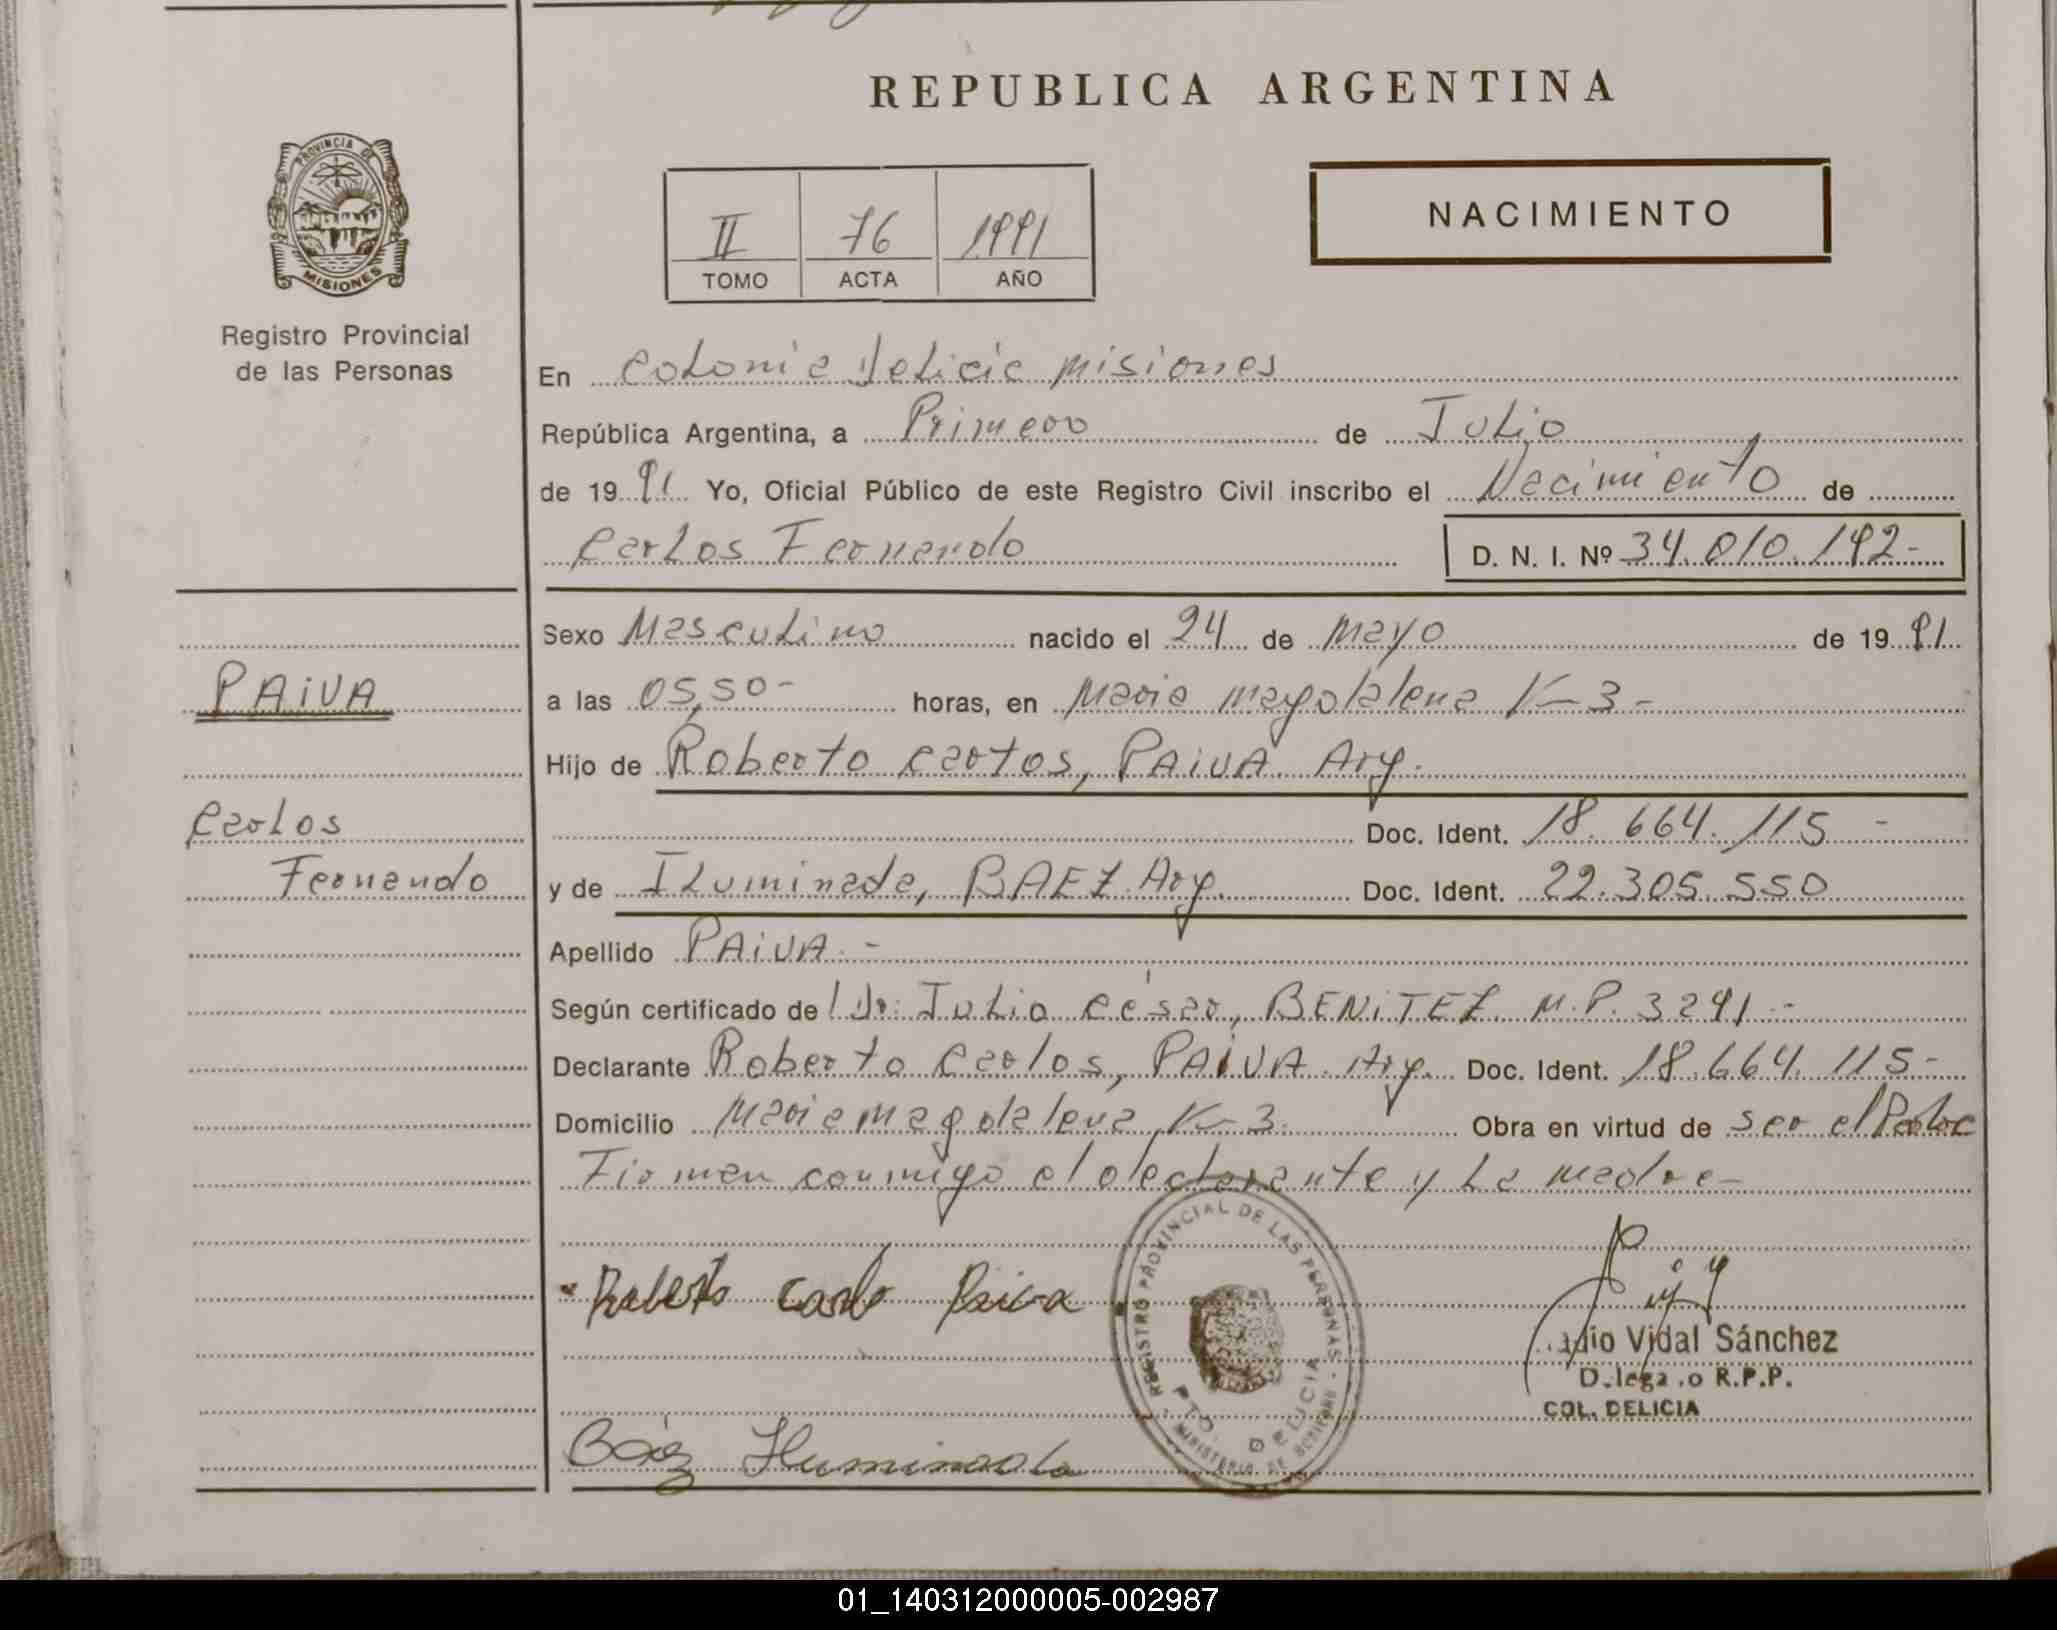 REPUBLICA ARGENTINA
PROVINCIA DE
MISIONES
Registro Provincial
de las Personas
II 76 1991
TOMO ACTA AÑO
NACIMIENTO
En Colonia Delicia Misiones
República Argentina, a Primero de Julio
de 19 91 Yo, Oficial Público de este Registro Civil inscribo el Nacimiento de
Carlos Fernando D. N. I. Nº 34.010.192-
Sexo Masculino nacido el 24 de Mayo de 19 91
PAiVA
a las 05,50- horas, en Maria Magdalena K-3-
Hijo de Roberto Carlos, PAiVA Arg.
Carlos
Doc. Ident. 18.664.115-
Fernando
y de Iluminada, BAEZ Arg. Doc. Ident. 22.305.550
Apellido PAiVA.-
Según certificado de Dr: Julio César, BENiTEZ M.P. 3291-
Declarante Roberto Carlos, PAiVA Arg. Doc. Ident. 18.664.115-
Domicilio Maria Magdalena K-3 Obra en virtud de ser el Padre
Firman conmigo el declarante y La madre-
Roberto Carlo Paiva
REGISTRO PROVINCIAL DE LAS PERSONAS
PTO. DELICIA
MINISTERIO DE GOBIERNO
Vidal Sánchez
R.P.P.
COL. DELICIA
Báez Iluminada
01_140312000005-002987